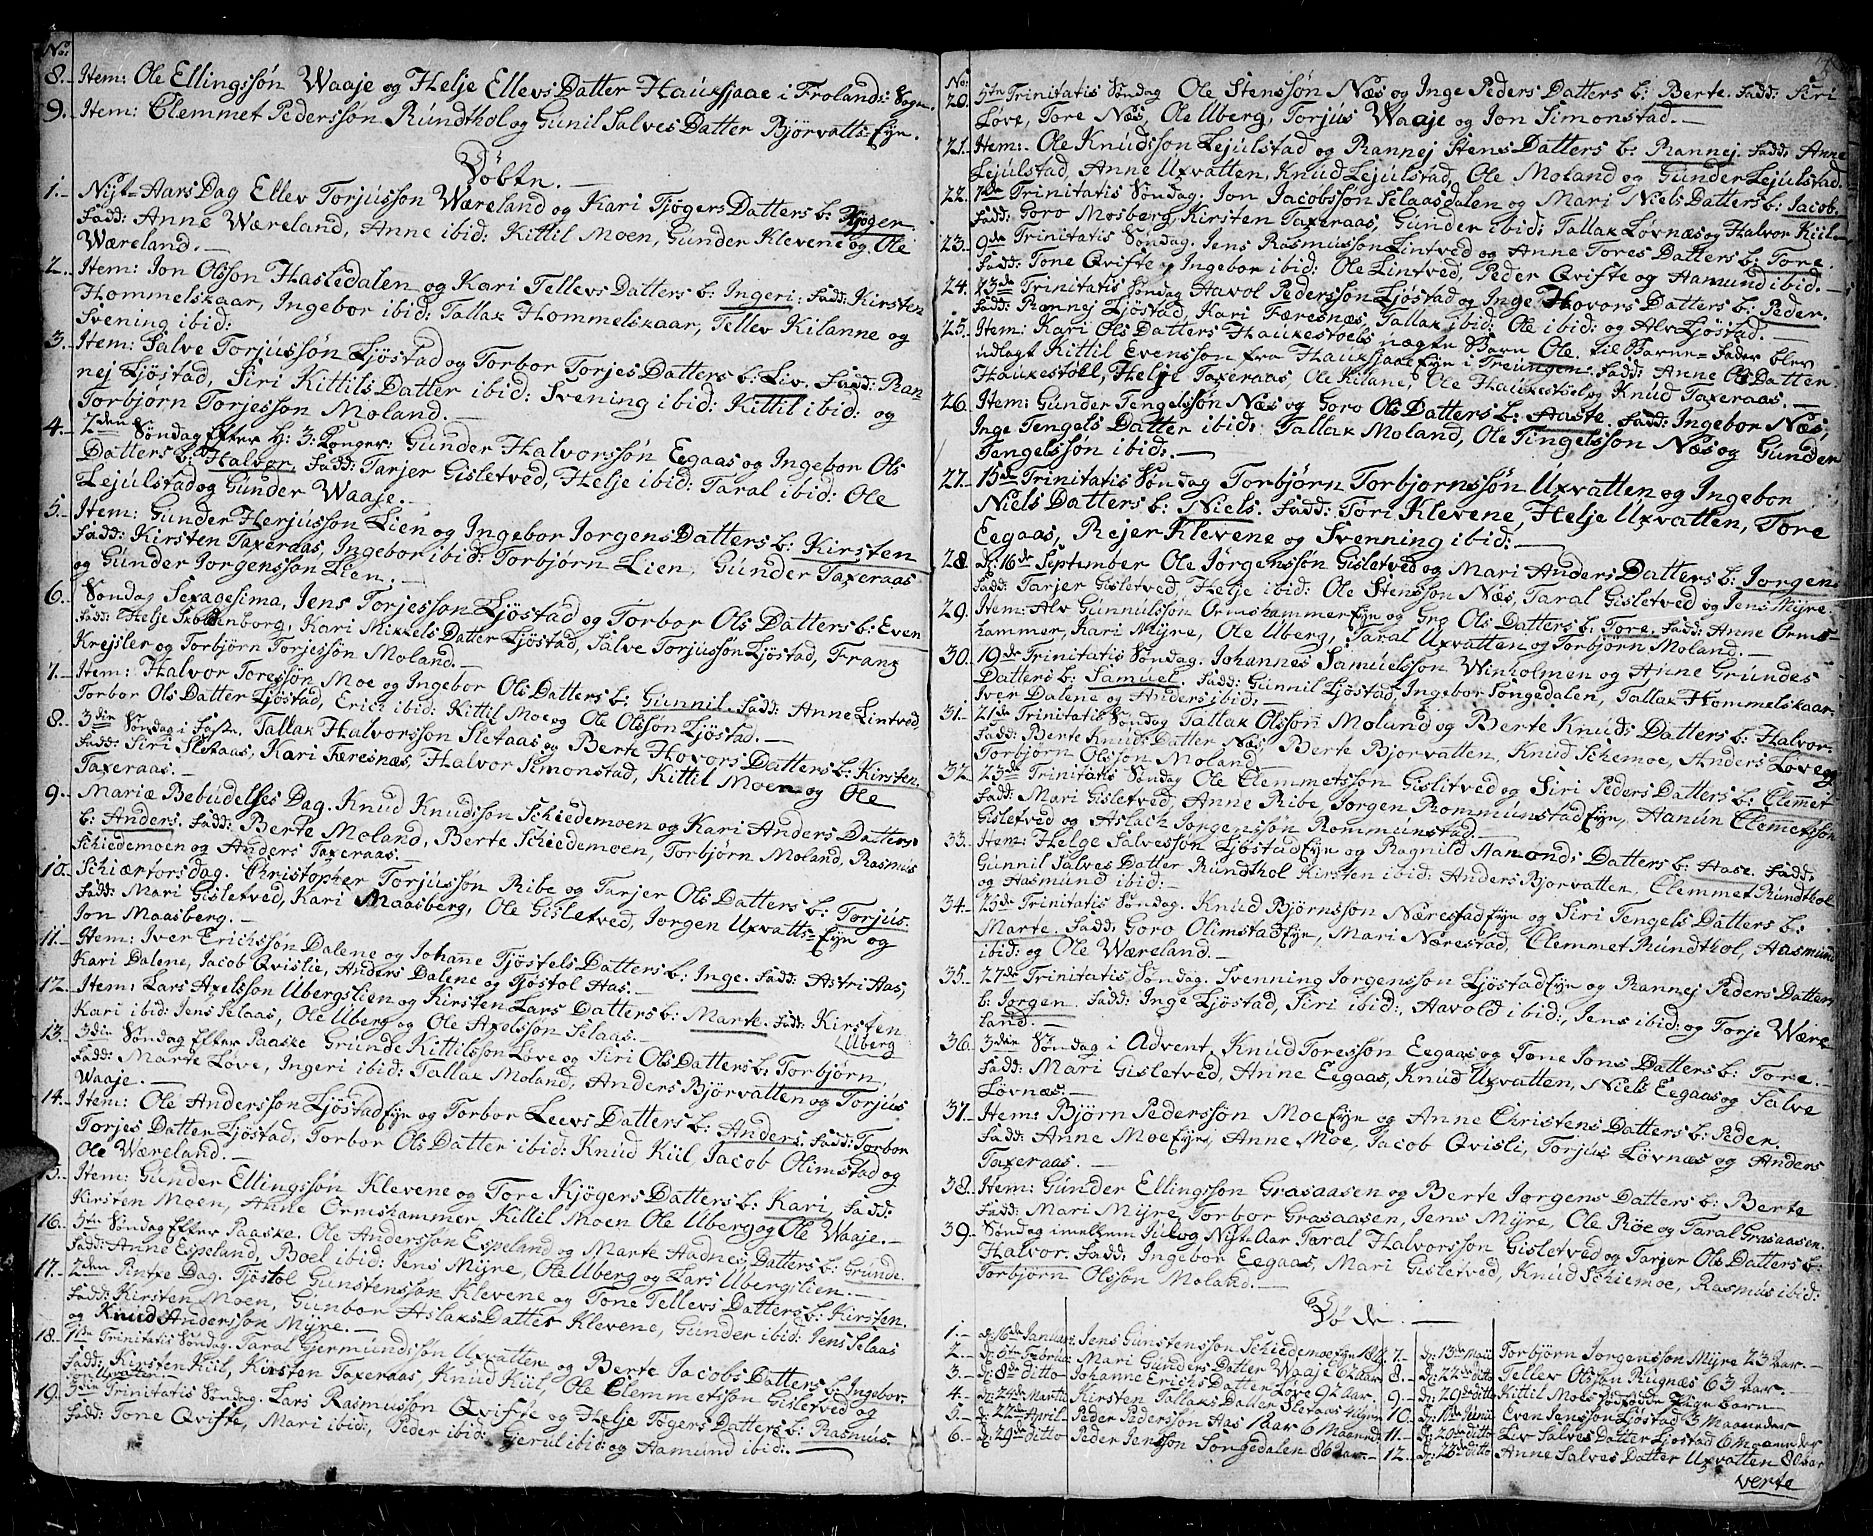 No:
8. Item: Ole Ellingssøn Waaje og Helje Ellevs Datter Hauxsjaae i Frolands: Sogn.
9. Item: Clemmet Pederssøn Rundthol og Gunil Salves Datter Bjørvatts Ejn.
Døbte.
1. Nyt-Aars Dag Ellev Torjussøn Wæreland og Kari Tjøgers Datters b: Kjøger
Fadd: Anne Wæreland, Anne ibid: Kittil Moen, Gunder Klevene og Ole
Wæreland.
2. Item: Jon Olssøn Hasledalen og Kari Tellevs Datters b: Ingeri. Fadd: Kirsten
Hommelskaar, Ingebor ibid: Tallak Hommelskaar, Tellev Kilanne og
Svening ibid:
3. Item: Salve Torjussøn Ljøstad og Torbor Torjes Datters b: Liv. Fadd: Ran
nej Ljøstad, Siri Kittils Datter ibid: Svening ibid: Kittil ibid: og
Torbjørn Torjessøn Moland.
4. 2den Søndag Efter H: 3: Konger: Gunder Halvorssøn Eegaas og Ingebor Ols
Datters b: Halvor. Fadd: Tarjer Gisletved, Helje ibid: Taral ibid: Ole
Lejulstad og Gunder Waaje.
5. Item: Gunder Herjussøn Lien og Ingebor Jorgens Datters b: Kirsten
Fadd: Kirsten Taxeraas, Ingebor ibid: Torbjørn Lien, Gunder Taxeraas
og Gunder Jorgenssøn Lien.
6. Søndag Sexagesima, Jens Torjessøn Ljøstad og Torbor Ols Datters b: Even
Fadd: Helje Skottenborg, Kari Mikkels Datter Ljøstad, Salve Torjussøn Ljøstad, Franz
Krejsler og Torbjørn Torjessøn Moland.
7. Item: Halvor Toressøn Moe og Ingebor Ols Datters b: Gunnil. Fadd: Anne Lintved,
Torbor Ols Datter Ljøstad, Erich ibid: Kittil Moe og Ole Olssøn Ljøstad.
8. 3die Søndag i Faste. Tallak Halvorssøn Sletaas og Berte Hovors Datters b: Kirsten.
Fadd: Siri Sletaas, Kari Færesnæs, Halvor Simonstad, Kittil Moen og Ole
Taxeraas.
9. Mariæ Bebudelses Dag. Knud Knudssøn Schiedemoen og Kari Anders Datters
b: Anders. Fadd: Berte Moland, Berte Schiedemoen, Torbjørn Moland, Rasmus
Schiedemoen og Anders Taxeraas.
10. Schiærtorsdag. Christopher Torjussøn Ribe og Tarjer Ols Datters b: Torjus.
Fadd: Mari Gisletved, Kari Maasberg, Ole Gisletved, Jorgen Uxvatts-Ejn og
Jon Maasberg.
11. Item: Iver Erichssøn Dalene og Johane Tjøstels Datters b: Inge. Fadd: Astri Aas,
Kari Dalene, Jacob Qvislie, Anders Dalene og Tjøstol Aas.
12. Item: Lars Axelssøn Ubergslien og Kirsten Lars Datters b: Marte. Fadd: Kirsten
Uberg
Kari ibid: Jens Selaas, Ole Uberg og Ole Axelssøn Selaas.
13. 3die Søndag Efter Paaske Grunde Kittilssøn Løve og Siri Ols Datters b: Torbjørn.
Fadd: Marte Løve, Ingeri ibid: Tallak Moland, Anders Bjorvatten og Torjus
Waaje.
14. Item: Ole Anderssøn Ljøstad Ejn og Torbor Leevs Datters b: Anders. Fadd: Torbor
Torjes Datter Ljøstad, Torbor Ols Datter ibid: Knud Kiil, Jacob Olimstad og
Ole Wæreland.
15. Item: Gunder Ellingssøn Klevene og Tore Kjøgers Datters b: Kari, Fadd:
Kirsten Moen, Anne Ormshammer, Kittil Moen Ole Uberg og Ole Waaje.
16. 5te Søndag Efter Paaske. Ole Anderssøn Espeland og Marte Aadnes Datters b: Grunde.
Fadd: Anne Espeland, Boel ibid: Jens Mÿre, Ole Uberg og Lars Ubergslien.
17. 2den Pintze Dag. Tjøstol Gunstenssøn Klevene og Tone Tellevs Datters b: Kirsten.
Fadd: Kirsten Moen, Gunbor Aslaks Datter Klevene, Gunder ibid: Jens Selaas
og Knud Anderssøn Mÿre.
18. 1ste Trinitatis Søndag. Taral Germundssøn Uxvatten og Berte Jacobs Datters b: Ingebor.
Fadd: Kirsten Kiil, Kirsten Taxeraas, Knud Kiil, Ole Clemmetssøn Gisletved og
Jon Uxvatten.
19. 3die Trinitatis Søndag. Lars Rasmussøn Qvifte og Helje Togers Datters b: Rasmus.
Fadd: Tone Qvifte, Mari ibid: Peder ibid: Gjerul ibid: og Aamund ibid:
No:
20. 5te Trinitatis Søndag Ole Stenssøn Næs og Inge Peders Datters b: Berte. Fadd: Siri
Løve, Tore Næs, Ole Uberg, Torjus Waaje og Jon Simonstad.
21. Item: Ole Knudssøn Lejulstad og Rannej Stens Datters b: Rannej. Fadd: Anne
Lejulstad, Anne Uxvatten, Knud Lejulstad, Ole Moland og Gunder Lejulstad.
22. 7de Trinitatis Søndag. Jon Jacobssøn Selaasdalen og Mari Niels Datters b: Jacob.
Fadd: Goro Mosberg, Kirsten Taxeraas, Gunder ibid: Tallak Løvnæs og Halvor Kiil
23. 9de Trinitatis Søndag. Jens Rasmussøn Lintved og Anne Tores Datters b: Tore.
Fadd: Tone Qvifte, Ingebor ibid: Ole Lintved, Peder Qvifte og Aamund ibid.
24. 13de Trinitatis Søndag Havol Pederssøn Ljøstad og Inge Hovors Datters b: Peder.
Fadd: Rannej Ljøstad, Kari Færesnæs, Tallak ibid: Ole ibid: og Alv Ljøstad.
25. Item: Kari Ols Datters Haukestoels uægte Barn Ole. til Barne-Fader blev
udlagt Kittil Evenssøn fra Hauxsjaae Ejn i Treungen. Fadd: Anne Ols Datter
Haukestøll, Helje Taxeraas, Ole Kiland, Ole Haukestøel og Knud Taxeraas.
26. Item: Gunder Tengelssøn Næs og Goro Ols Datters b: Aaste. Fadd: Ingebor Næs,
Inge Tengels Datter ibid: Tallak Moland, Ole Tingelssøn Næs og Gunder
Tengelssøn ibid:
27. 15de Trinitatis Søndag Torbjørn Torbjørnssøn Uxvatten og Ingebor
Niels Datters b: Niels. Fadd: Tori Klevene, Helje Uxvatten, Tore
Eegaas, Rejer Klevene og Svenning ibid:
28. D: 16de September Ole Jørgenssøn Gisletved og Mari Anders Datters b: Jorgen.
Fadd: Tarjer Gisletved, Helje ibid: Ole Stenssøn Næs, Taral Gisletved og Jens Mÿre.
29. Item: Alv Gunnulssøn Ormshammer Ejn og Gro Ols Datters b: Tore. Fadd: Anne Orms
hammer, Kari Mÿre, Ole Uberg, Taral Uxvatten og Torbjørn Moland.
30. 19de Trinitatis Søndag. Johannes Samuelssøn Winholmen og Anne Grundes
Datters b: Samuel. Fadd: Gunnil Ljøstad, Ingebor Songedalen, Tallak Hommelskaar.
Iver Dalene og Anders ibid:
31. 21de Trinitatis Søndag Tallak Olssøn Moland og Berte Knuds Datters b: Halvor.
Fadd: Berte Knuds Datter Næs, Berte Bjorvatten, Knud Schemoe, Anders Løve og
Torbjørn Olssøn Moland.
32. 23de Trinitatis Søndag Ole Clemmetssøn Gisletved og Siri Peders Datters b: Clemmet
Fadd: Mari Gisletved, Anne Ribe, Jorgen Rommunstad Ejn, Aanun Clemmetssøn
Gisletved og Aslach Jorgenssøn Rommunstad.
33. Item: Helge Salvessøn Ljøstad Ejn og Ragnild Aamonds Datters b: Aase. Fadd:
Gunnil Salves Datter Rundthol Kirsten ibid: Anders Bjorvatten, Clemmet Rundthol
og Aasmund ibid:
34. 25de Trinitatis Søndag. Knud Bjørnssøn Nærestad Ejn og Siri Tengels Datters b:
Marte. Fadd: Goro Olimstad Ejn, Mari Nærestad, Clemmet Rundthol, Aasmund
ibid: og Ole Wæreland.
35. 27de Trinitatis Søndag. Svenning Jorgenssøn Ljøstad Ejn og Rannej Peders Datters
b: Jørgen. Fadd: Inge Ljøstad, Siri ibid:, Aavold ibid:, Jens ibid: og Torje Wære
land.
36. 3die Søndag i Advent, Knud Toressøn Eegaas og Tone Jons Datters b: Tore.
Fadd: Mari Gisletved, Anne Eegaas, Knud Uxvatten, Niels Eegaas og Salve
Løvnæs.
37. Item: Bjørn Pederssøn Moe Ejn og Anne Christens Datters b: Peder.
Fadd: Anne Moe Ejn, Anne Moe, Jacob Qvisli, Torjus Løvnæs og Anders
Taxeraas.
38. Item: Gunder Ellingssøn Grasaasen og Berte Jørgens Datters b: Berte
Fadd: Mari Mÿre, Torbor Grasaasen, Jens Mÿre, Ole Røe og Taral Grasaasen.
39. Søndag imellem Jul og Nyt-Aar Taral Halvorssøn Gisletved og Tarjer Ols Datters b:
Halvor. Fadd: Ingebor Eegaas, Mari Gisletved, Knud Schiemoe, Rasmus ibid:
Torbjørn Olssøn Moland.
Døde.
1. D: 16de Januar Jens Gunstenssøn Schiedemoe Ejn
2. D: 5te Februar Mari Gunders Datter Waaje 62 Aar
3. D: 8de ditto Johanne Erichs Datter Løve 92 Aar.
4. D: 24de Martii Kirsten Tallaks Datter Sletaas 4 Uger
5. D: 22de April Peder Pederssøn Aas 1 Aar 6 Maaned
6. D: 29de ditto Peder Jenssøn Songedalen 86 Aar.
7. D: 13de Maii Torbjørn Jorgenssøn Mÿre 23 Aar.
8. D: 22de ditto Tellev Olssøn Rugnæs 63 Aar.
9. D: 29de ditto Kittil Moes dødfødde Pige barn
10. D: 11te Junii Even Jenssøn Ljøstad 3 Maaneder
11. D: 20de ditto Liv Salves Datter Ljøstad 6 Maaneder
12. D: 23de ditto Anne Salves Datter Uxvatten 80 Aar
verte